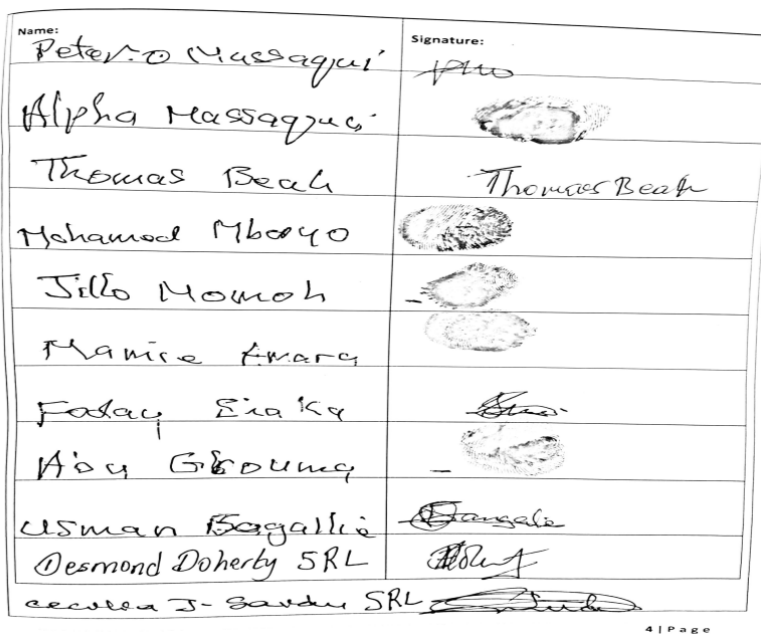 Name: Signature:
Peter. O Massaqui
Alpha Massaquoi
Thomas Beah Thomas Beah
Mohamed Mbayo
Jillo Momoh
Mamie Amara
Foday
Abu Gbouma
Usman Bagallie Bangalie
Desmond Doherty SRL
J- SRL
4 | Page